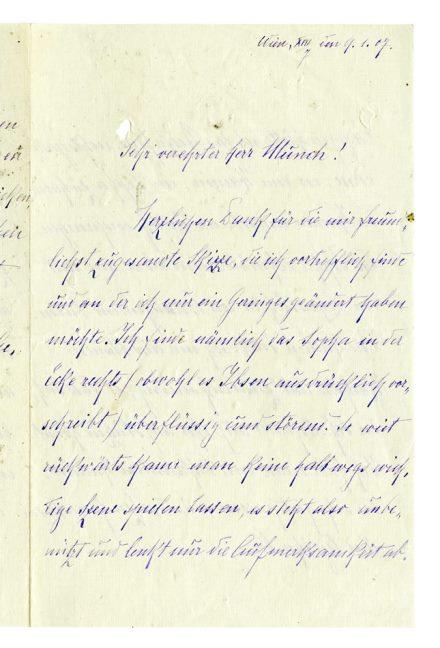 Wien, XIII/7 um 9. 1. 07.
Sehr verehrter Herr Munch!
Herzlichen Dank für die mir freund-
lichst zugesandte Skizze, die ich vortrefflich finde
und an der ich nur ein Geringes geändert haben
möchte. Ich finde nämlich das Sopha in der
Ecke rechts (obwohl es Ibsen ausdrücklich vor-
schreibt) überflüssig und störend. So weit
rückwärts kann man keine halbwegs wich-
tige Szene spielen lassen, es steht also unbe-
nützt und lenkt nur die Aufmerksamkeit ab.